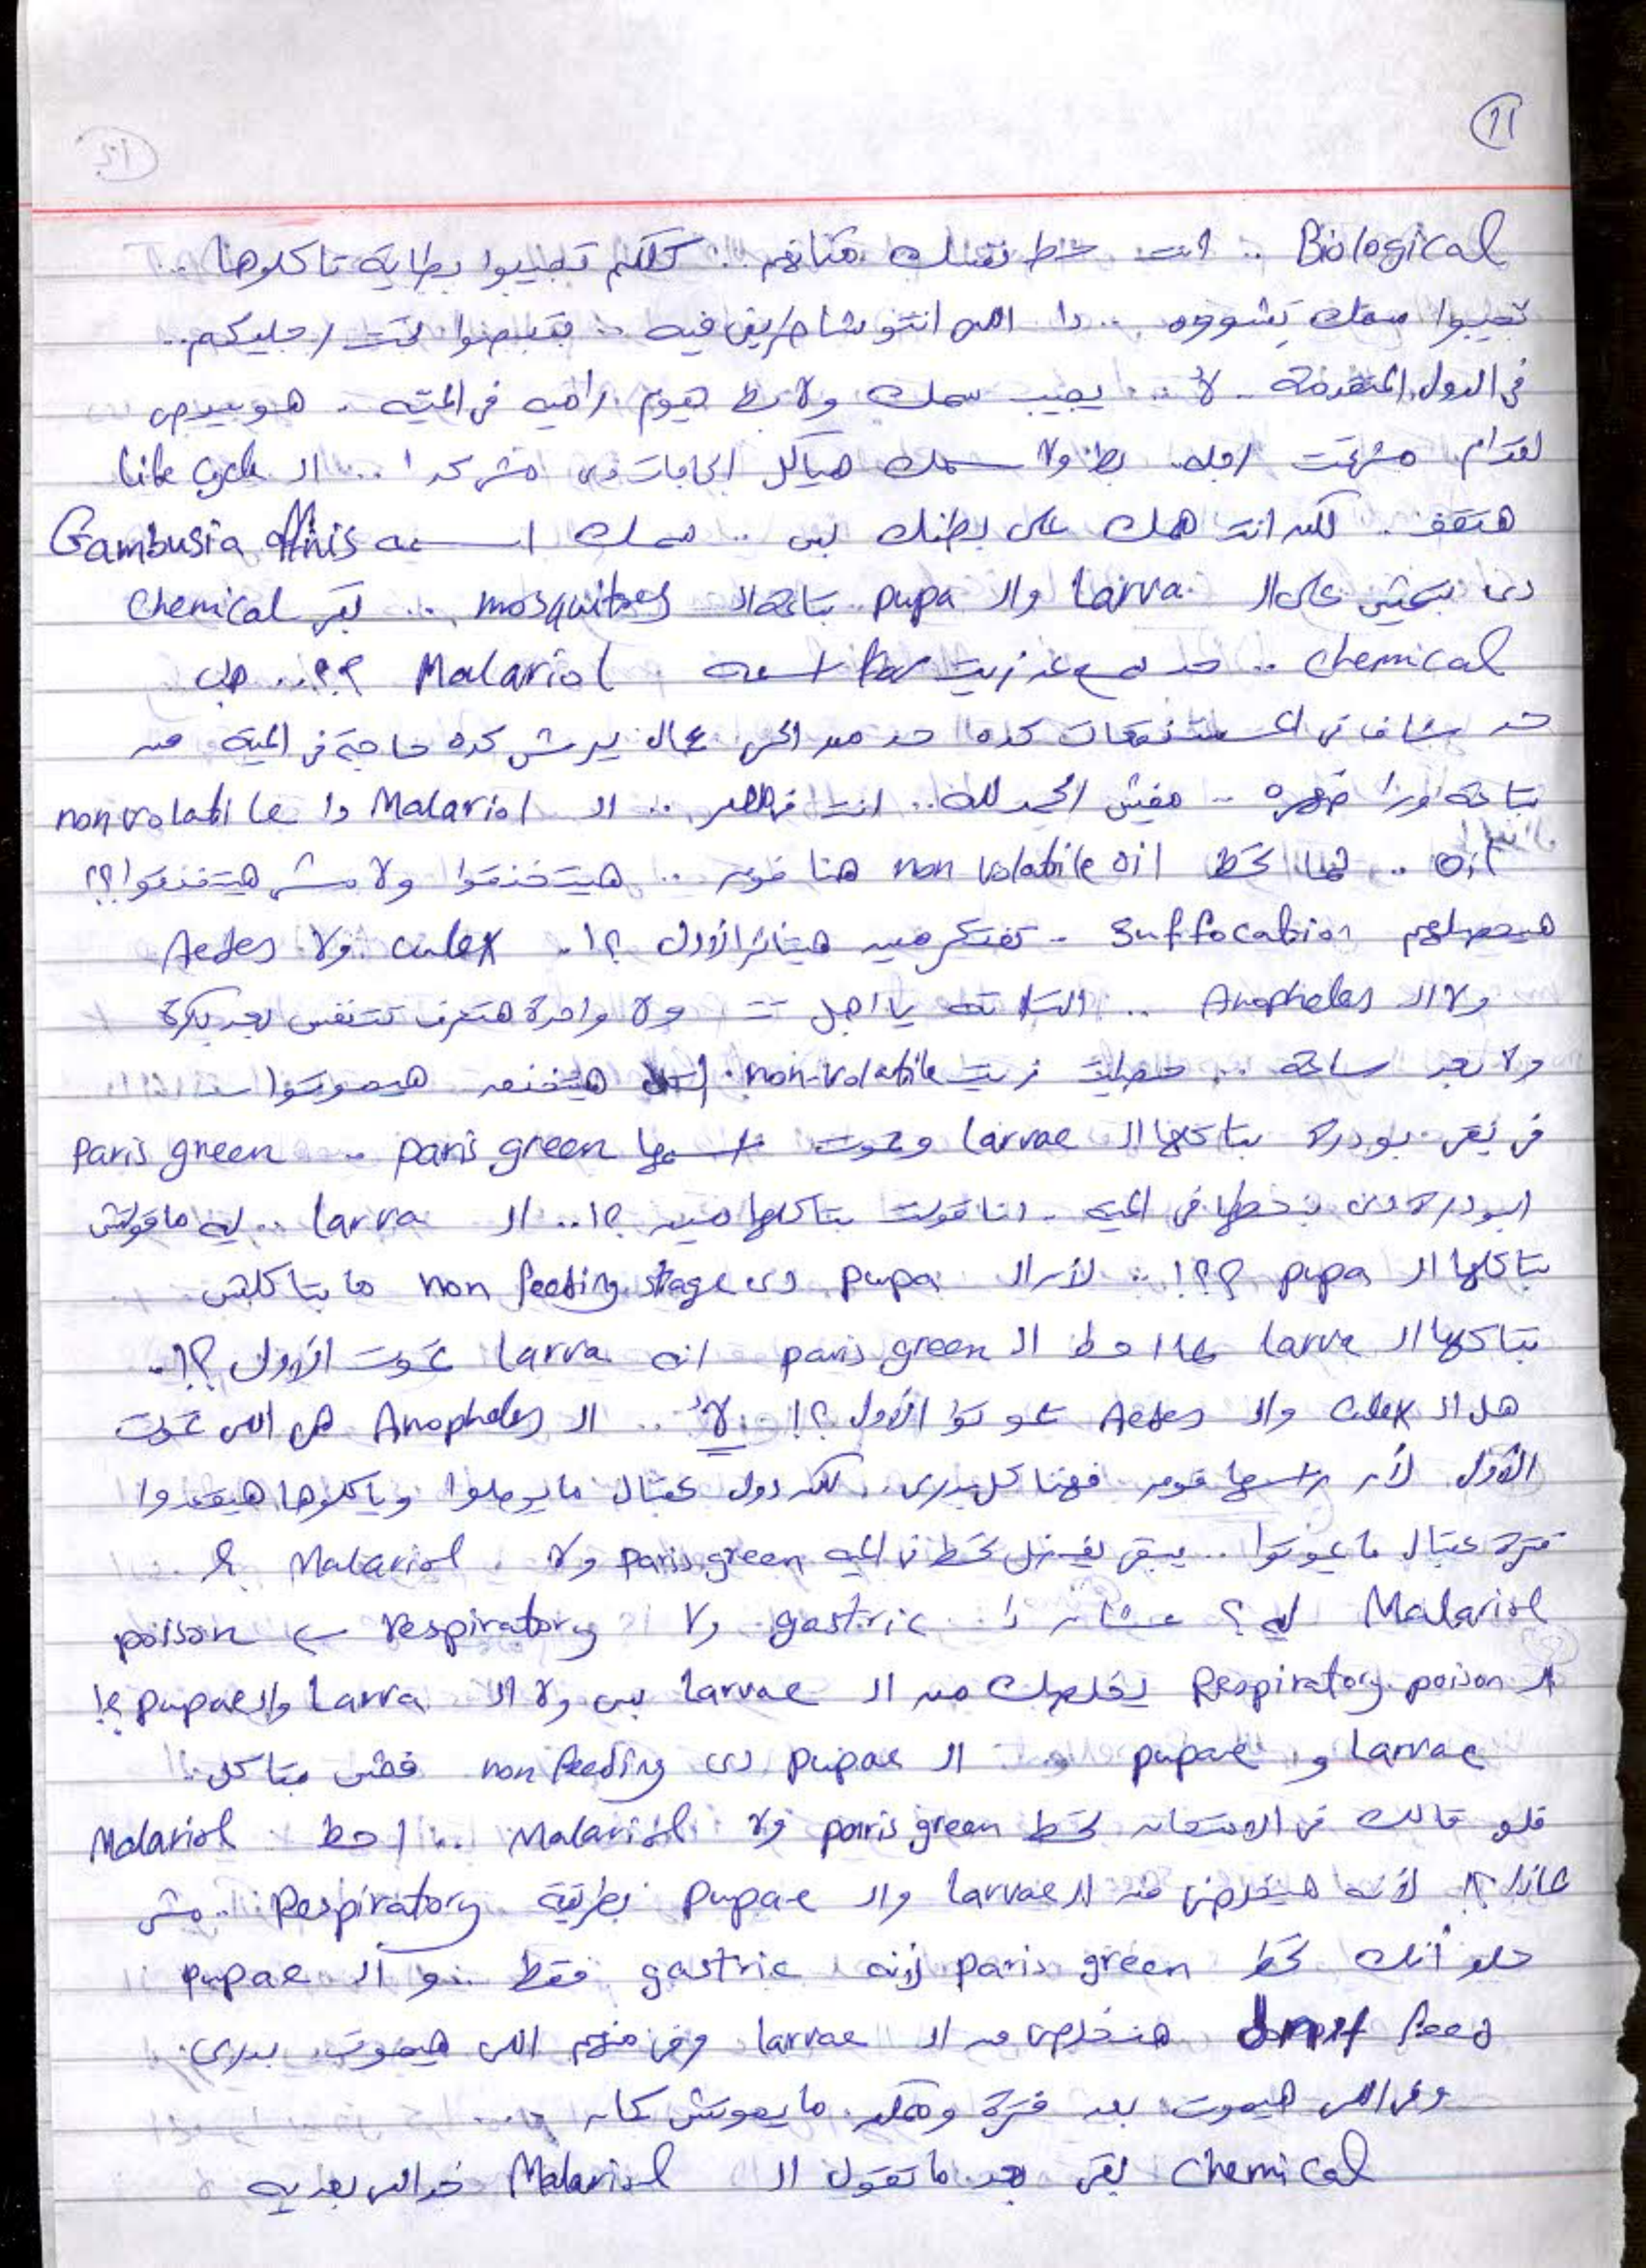 11
Biological .. انت حط نفسك مكانهم .. كلكم تجيبوا بطاية تاكلوها ..
تجيبوا سمك تشووه .. دا اللى انتو شاطرين فيه .. فتبصوا تحت رجليكم ..
فى الدول المتقدمة .. لأ .. يجيب سمك ولا بط هيوم راميه فى الميه . هو بيبص
لقدام مش تحت رجله بط ولا سمك هياكل الحاجات دى مش كدا ! .. الـ life cycle
هتقف .. لكن انت همك على بطنك بس .. سمك اسمه Gambusia affinis
دى بتعيش على الـ larva والـ pupa بتاعة الـ mosquitoes .. بقى chemical
chemical .. حد سمع عن زيت اسمه Malariol ؟؟ .. هل
حد شاف فى المستنقعات كده حد من الحى عمال يرش كده حاجة فى المية من
بتاعة ورا ضهره .. مفيش الحمد لله .. انت .. الـ Malariol دا non volatile
oil .. لما تحط non volatile oil هنا فوق .. هيتخنقوا ولا مش هيتخنقوا ؟؟
هيحصلهم suffocation .. تفتكر مين هيتأثر الأول ؟! .. culex ولا Aedes
ولا الـ Anopheles .. التلاته يا اجل .. ولا واحدة هتعرف تتنفس بعد بكرة
ولا بعد ساعة .. حطيت زيت non-volatile هيتخنقه هيموتوا ..
فى بقى بودرة بتاكلها الـ larvae وتموت اسمها paris green .. paris green
البودرة دى بنحطها فى الميه .. انا قولت بتاكلها مين ؟! .. الـ larva .. ليه ما قولتش
بتاكلها الـ pupa ؟؟! .. لأن الـ pupa دى non feeding stage ما بتاكلش
بتاكلها الـ larva لما احط الـ paris green انه larva تموت الأول ؟! ..
هل الـ culex والـ Aedes تموتوا الأول ؟! لأ .. الـ Anopheles هى اللى تموت
الأول لأن راسها فوق فهتاكل بدرى .. لكن دول عبال ما يوصلوا وياكلوها هيقعدوا
فترة عبال ما يموتوا .. يبقى يفضل تحط فى الميه paris green ولا Malariol ؟
Malariol ليه ؟ عشان دا gastric ولا respiratory ← poison
الـ Respiratory poison يخلصك من الـ larvae بس ولا الـ Larva والـ pupae ؟!
Larvae و pupae .. الـ pupae دى non feeding فمش بتاكل ..
فلو قالك فى الامتحان تحط paris green ولا Malariol .. احط Malariol
لماذا ؟! لأنه هيخلصنى من الـ larvae والـ pupae بطريقة Respiratory .. مش
حلو أنك تحط paris green لأنه gastric فقط .. و الـ pupae
don't feed هتخلص من الـ larvae وفى منهم اللى هيموت بدرى ..
وفى اللى هيموت بعد فترة وممكن ما يموتش كمان ..
chemical بقى بعد ما تقول الـ Malariol خد اللى بعديه